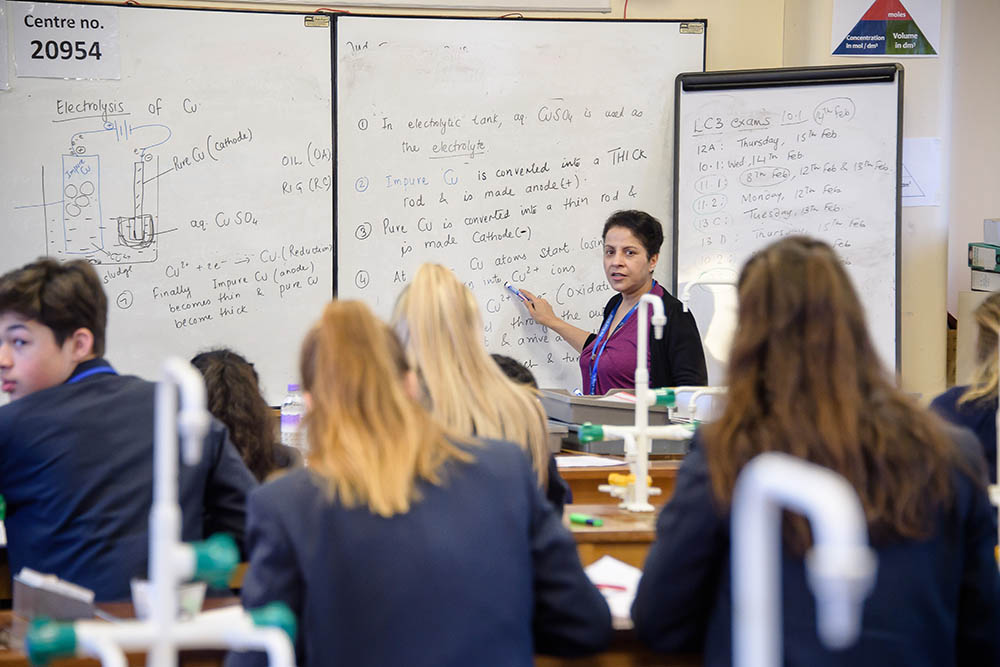 Centre no.
20954
Electrolysis of Cu
Impure Cu
Pure Cu (cathode)
OIL (OA)
RIG (RC)
aq. CuSO4
sludge
Cu2+ + 2e- → Cu (Reduction)
⑦ Finally Impure Cu (anode)
becomes thin & pure Cu
become thick
① In electrolytic tank, aq. CuSO4 is used as
the electrolyte
② Impure Cu is converted into a THICK
rod & is made anode(+).
③ Pure Cu is converted into a thin rod &
is made Cathode(-)
④ At Cu atoms start losing
into Cu2+ ions
Cu2+ (Oxidat
through the
& arrive a
&
LC3 exams 10.1
12A: Thursday, 15th Feb
10.1: Wed, 14th Feb
11.1: 8th Feb, 12th Feb & 13th Feb
11.2: Monday, 12th Feb
13C: Tuesday, 13th Feb
13D: Thursday 15th Feb
Feb
moles
Concentration
in mol / dm³
Volume
in dm³